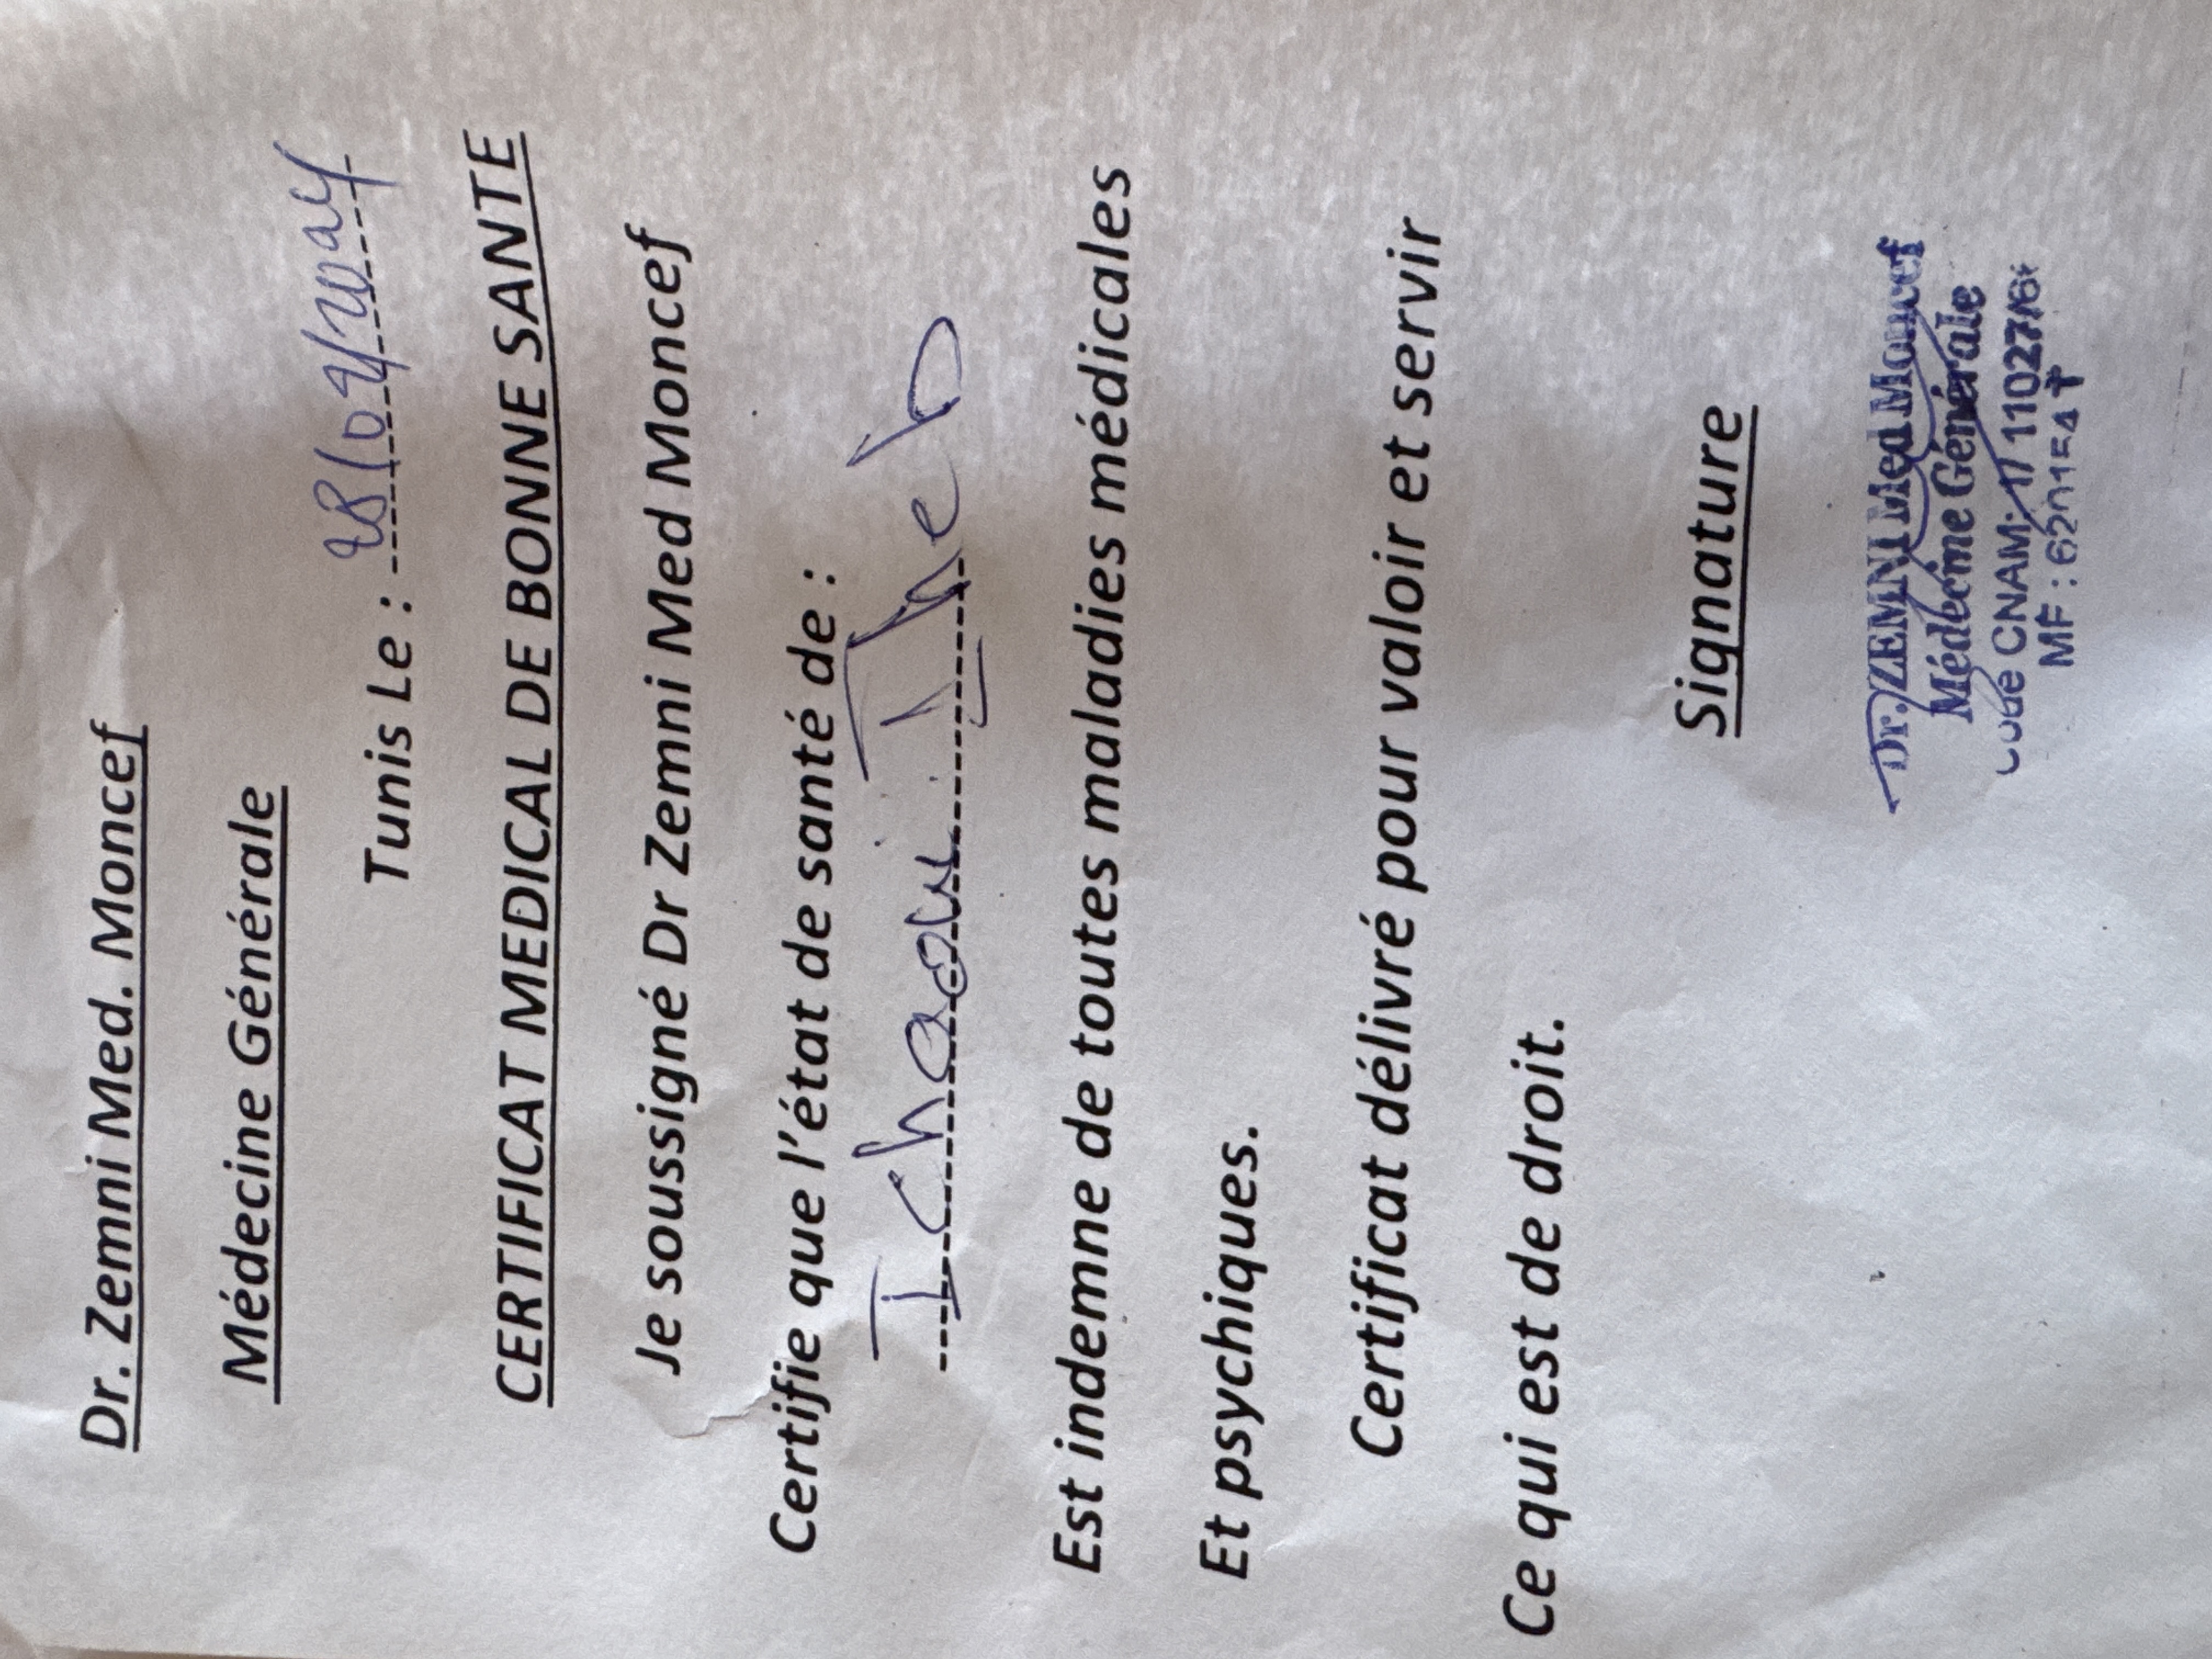 Dr. Zemni Med. Moncef
Médecine Générale
Tunis Le : 28/04/2024
CERTIFICAT MEDICAL DE BONNE SANTE
Je soussigné Dr Zemni Med Moncef
Certifie que l'état de santé de :
Est indemne de toutes maladies médicales
Et psychiques.
Certificat délivré pour valoir et servir
Ce qui est de droit.
Signature
Dr. ZEMNI Med Moncef
Médecine Générale
Code CNAM: 1/ 11027/6
MF :